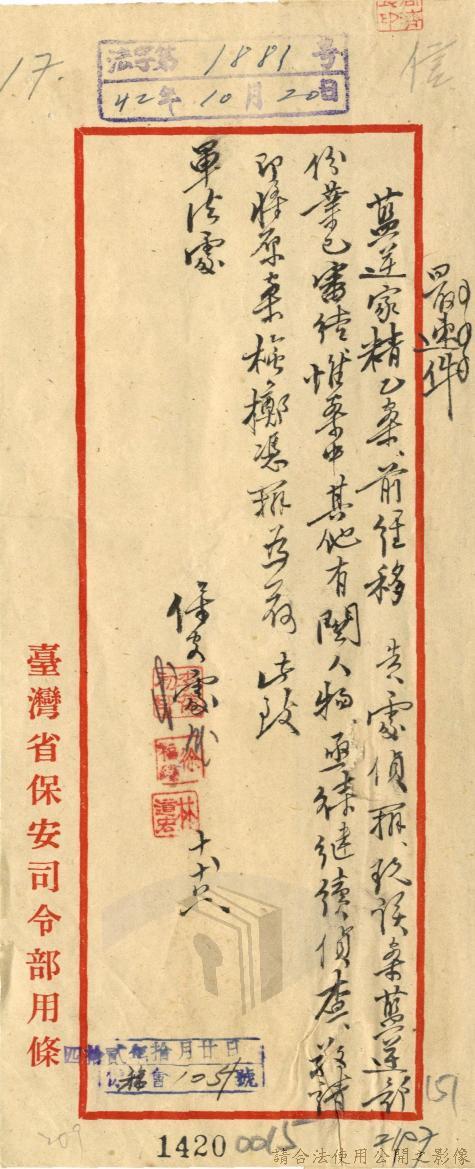 17.
法字第 1881 号
42年 10月 20日
最速件
藍逆家精乙案、前經移 貴處偵辦、現該案藍逆部
份業已審結惟案中其他有關人物、亟待繼續偵查、敬請
即將原案檢擲憑辦為荷 此致
軍法處
保安處
十、十六
臺灣省保安司令部用條
四拾貳年拾月廿日
會 1051 號
151
209
1420
0015
請合法使用公開之影像